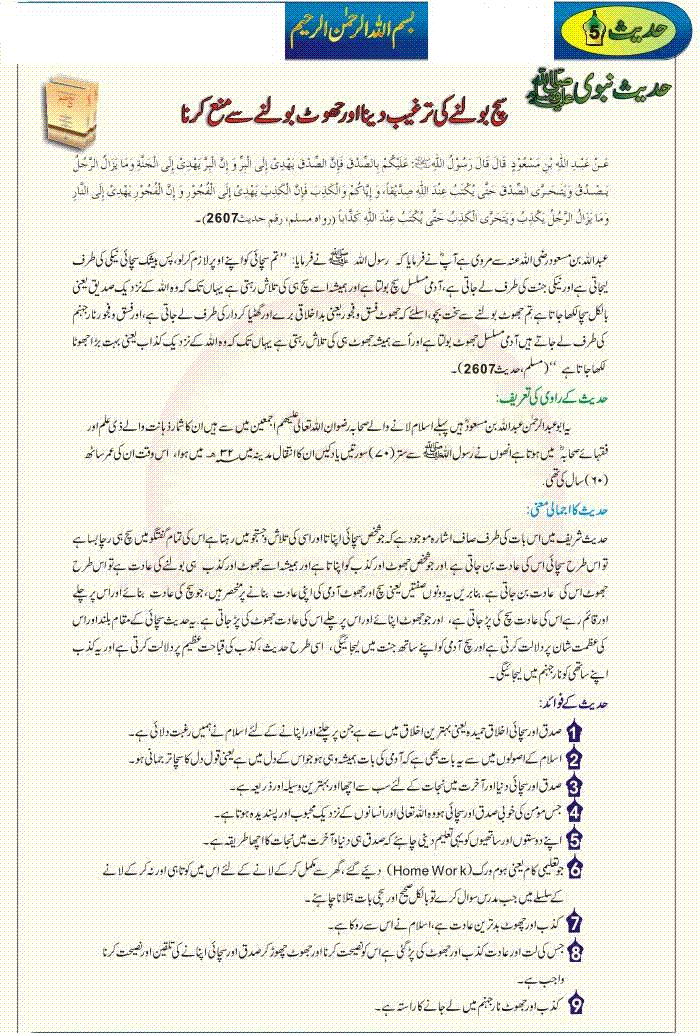 حدیث 5
بسم اللہ الرحمٰن الرحیم
حدیث نبوی ﷺ
سچ بولنے کی ترغیب دینا اور جھوٹ بولنے سے منع کرنا
عَنْ عَبْدِ اللهِ بْنِ مَسْعُوْدٍ قَالَ قَالَ رَسُوْلُ اللهِ ﷺ: عَلَيْكُمْ بِالصِّدْقِ فَإِنَّ الصِّدْقَ يَهْدِيْ إِلَى الْبِرِّ وَ إِنَّ الْبِرَّ يَهْدِيْ إِلَى الْجَنَّةِ وَمَا يَزَالُ الرَّجُلُ
يَصْدُقُ وَيَتَحَرَّى الصِّدْقَ حَتّٰى يُكْتَبَ عِنْدَ اللهِ صِدِّيْقاً، وَ إِيَّاكُمْ وَالْكَذِبَ فَإِنَّ الْكَذِبَ يَهْدِيْ إِلَى الْفُجُوْرِ وَ إِنَّ الْفُجُوْرَ يَهْدِيْ إِلَى النَّارِ
وَمَا يَزَالُ الرَّجُلُ يَكْذِبُ وَيَتَحَرَّى الْكَذِبَ حَتّٰى يُكْتَبَ عِنْدَ اللهِ كَذَّاباً (رواه مسلم، رقم حدیث 2607)۔
عبداللہ بن مسعود رضی اللہ عنہ سے مروی ہے آپؓ نے فرمایا کہ رسول اللہ ﷺ نے فرمایا: ’’تم سچائی کو اپنے اوپر لازم کرلو، پس بیشک سچائی نیکی کی طرف
لیجاتی ہے اور نیکی جنت کی طرف لے جاتی ہے، آدمی مسلسل سچ بولتا ہے اور ہمیشہ اسے سچ ہی کی تلاش رہتی ہے یہاں تک کہ وہ اللہ کے نزدیک صدیق یعنی
بالکل سچا لکھا جاتا ہے تم جھوٹ بولنے سے سخت بچو، اسلئے کہ جھوٹ فسق و فجور یعنی بد اخلاقی برے اور گھٹیا کردار کی طرف لے جاتی ہے، اور فسق و فجور نار جہنم
کی طرف لے جاتے ہیں آدمی مسلسل جھوٹ بولتا ہے اور اُسے ہمیشہ جھوٹ ہی کی تلاش رہتی ہے یہاں تک کہ وہ اللہ کے نزدیک کذاب یعنی بہت بڑا جھوٹا
لکھا جاتا ہے‘‘ (مسلم، حدیث 2607)۔
حدیث کے راوی کی تعریف:
یہ ابو عبدالرحمٰن عبداللہ بن مسعودؓ ہیں پہلے اسلام لانے والے صحابہ رضوان اللہ تعالیٰ علیھم اجمعین میں سے ہیں ان کا شمار ذہانت والے ذی علم اور
فقہائے صحابہؓ میں ہوتا ہے انھوں نے رسول اللہ ﷺ سے ستر (۷۰) سورتیں یاد کیں ان کا انتقال مدینہ میں ۳۲ھ میں ہوا، اس وقت ان کی عمر ساٹھ
(۶۰) سال کی تھی.
حدیث کا اجمالی معنیٰ:
حدیث شریف میں اس بات کی طرف صاف اشارہ موجود ہے کہ جو شخص سچائی اپناتا اور اسی کی تلاش و جستجو میں رہتا ہے اس کی تمام گفتگو میں سچ ہی رچا بسا ہے
تو اس طرح سچائی اس کی عادت بن جاتی ہے اور جو شخص جھوٹ اور کذب کو اپناتا ہے اور ہمیشہ اسے جھوٹ اور کذب ہی بولنے کی عادت ہے تو اس طرح
جھوٹ اس کی عادت بن جاتی ہے بنابریں یہ دونوں صفتیں یعنی سچ اور جھوٹ آدمی کی اپنی عادت بنانے پر منحصر ہیں، جو سچ کی عادت بنائے اور اس پر چلے
اور قائم رہے اس کی عادت سچ کی پڑ جاتی ہے، اور جو جھوٹ اپنائے اور اس پر چلے اس کی عادت جھوٹ کی پڑ جاتی ہے۔ یہ حدیث سچائی کے مقام بلند اور اس
کی عظمت شان پر دلالت کرتی ہے اور سچ آدمی کو اپنے ساتھ جنت میں لیجائیگی، اسی طرح حدیث، کذب کی قباحت عظیم پر دلالت کرتی ہے اور یہ کذب
اپنے ساتھی کو نار جہنم میں لیجائیگی۔
حدیث کے فوائد:
1 صدق اور سچائی اخلاق حمیدہ یعنی بہترین اخلاق میں سے ہے جن پر چلنے اور اپنانے کے لئے اسلام نے ہمیں رغبت دلائی ہے۔
2 اسلام کے اصولوں میں سے یہ بات بھی ہے کہ آدمی کی بات ہمیشہ وہی ہو جو اس کے دل میں ہے یعنی قول دل کا سچا ترجمانی ہو۔
3 صدق اور سچائی دنیا اور آخرت میں نجات کے لئے سب سے اچھا اور بہترین وسیلہ اور ذریعہ ہے۔
4 جس مومن کی خوبی صدق اور سچائی ہو وہ اللہ تعالیٰ اور انسانوں کے نزدیک محبوب اور پسندیدہ ہوتا ہے۔
5 اپنے دوستوں اور ساتھیوں کو یہی تعلیم دینی چاہئے کہ صدق ہی دنیا و آخرت میں نجات کا اچھا طریقہ ہے۔
6 جو تعلیمی کام یعنی ہوم ورک (Home Work) دیئے گئے، گھر سے مکمل کر کے لانے کے لئے اس میں کوتاہی اور نہ کر کے لانے کے
سلسلے میں جب مدرس سوال کرے تو بالکل صحیح اور سچی بات بتلانا چاہئے۔
7 کذب اور جھوٹ بدترین عادت ہے، اسلام نے اس سے روکا ہے۔
8 جس کی لت اور عادت کذب اور جھوٹ کی پڑ گئی ہے اس کو نصیحت کرنا اور جھوٹ چھوڑ کر صدق اور سچائی اپنانے کی تلقین اور نصیحت کرنا
واجب ہے۔
9 کذب اور جھوٹ نار جہنم میں لے جانے کا راستہ ہے۔